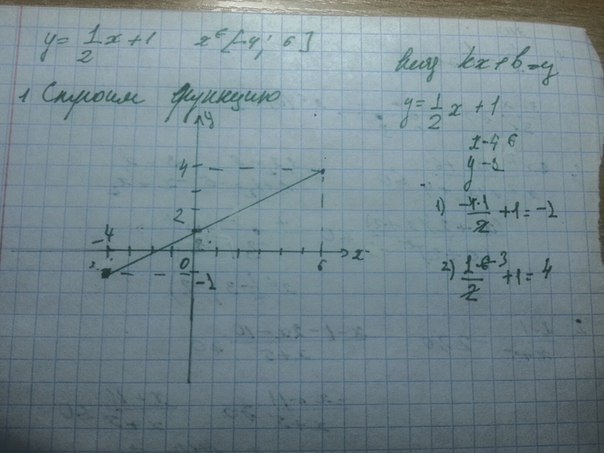 y = 1/2 x + 1   x ∈ [-4; 6]
1 Строим функцию
y
4
2
-4
0
6
x
-2
Вид kx + b = y
y = 1/2 x + 1
x -4 6
y -2
1) -4·1/2 + 1 = -2
2) 1·6 -3/2 + 1 = 4